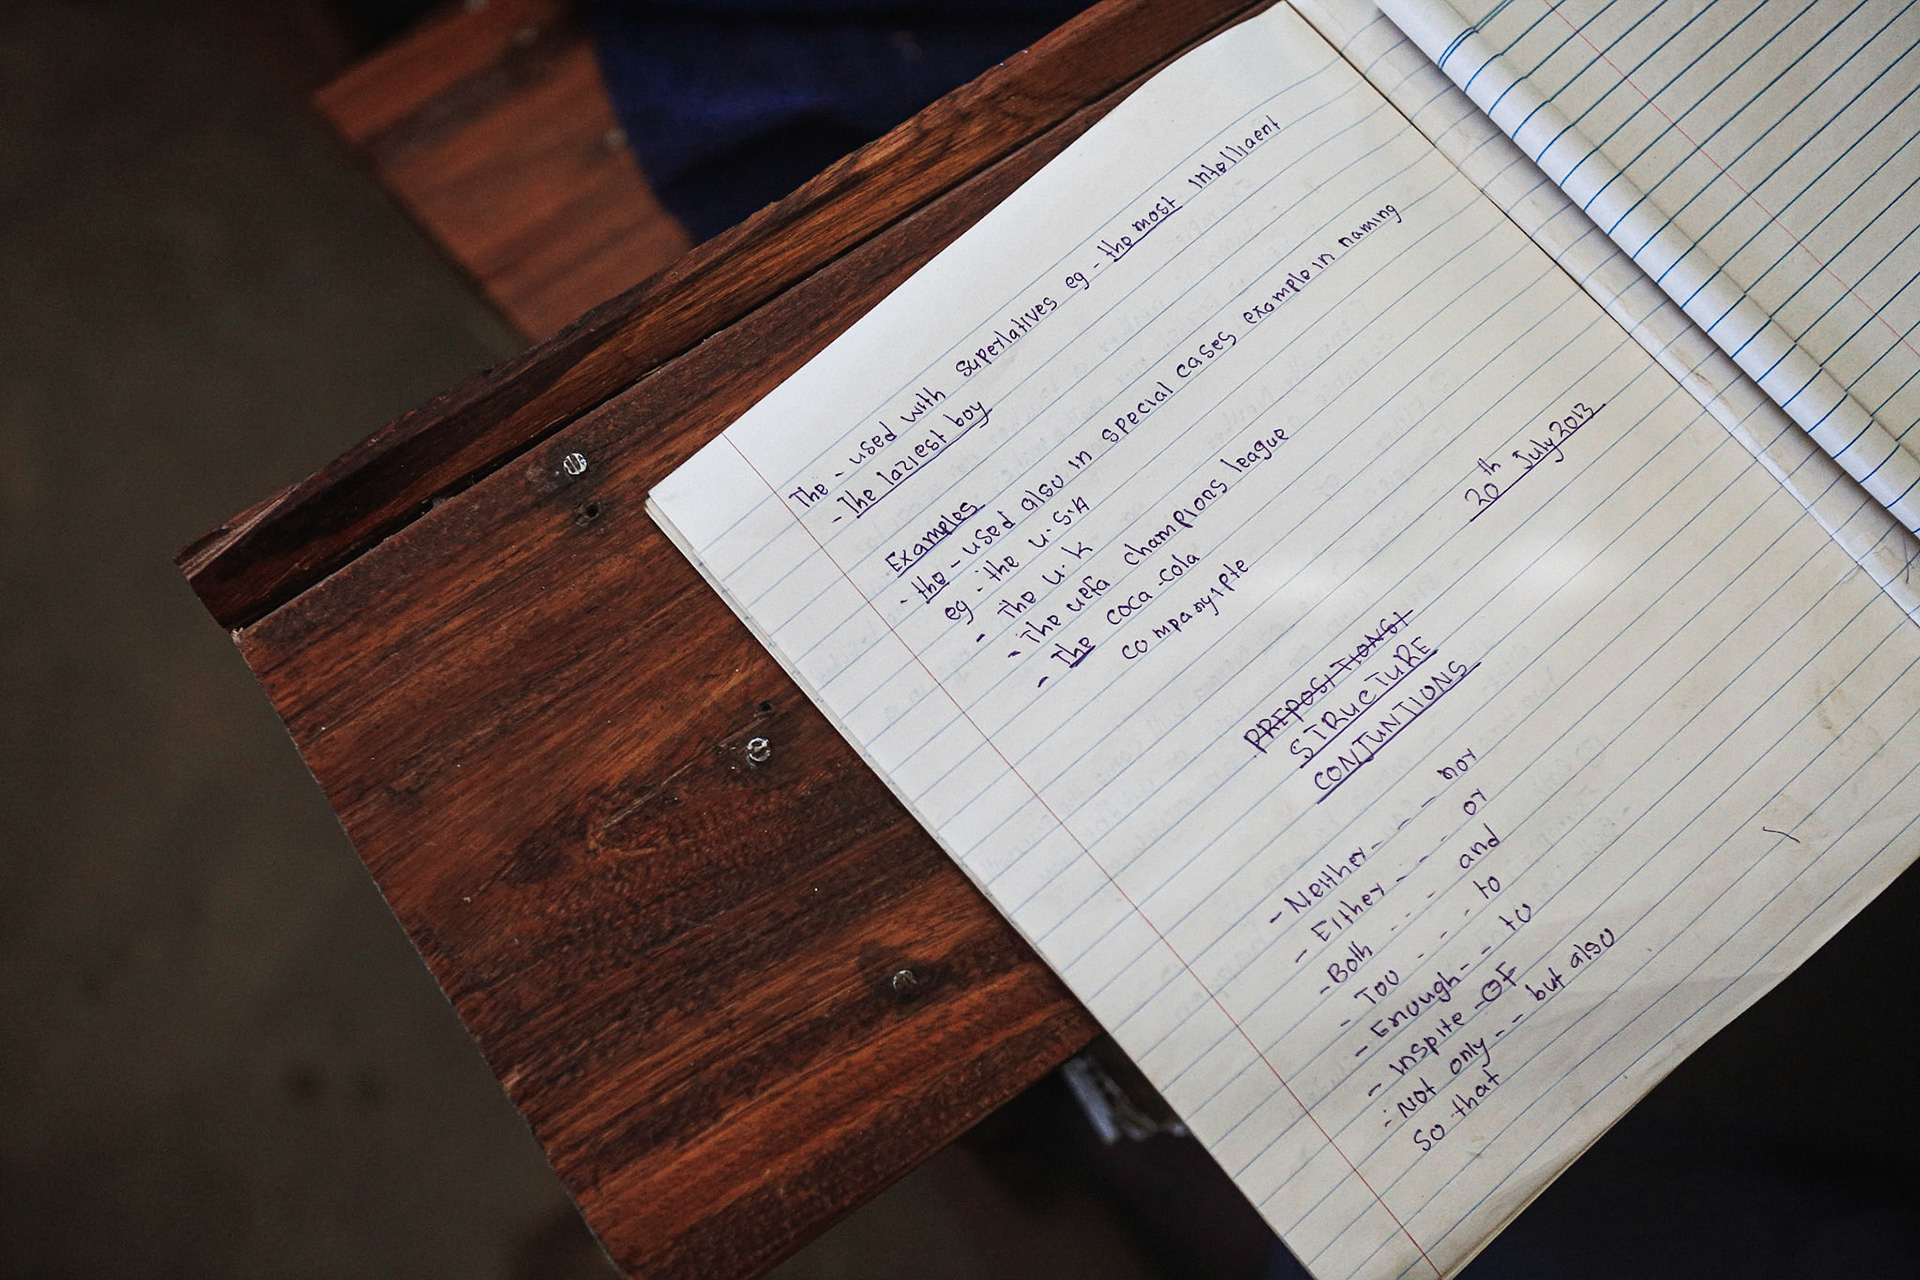 The - used with superlatives eg - the most intelligent
- The laziest boy
Examples
- the - used also in special cases example in naming
eg - the U.S.A
- The U.K
- The uefa champions league
- The coca-cola
company
20th July 2013
PREPOSITIONS
STRUCTURE
CONJUNTIONS
- Neither - - - nor
- Either - - - or
- Both - - - and
- Too - - - to
- Enough - - to
- Inspite - OF
- Not only - - but also
So that